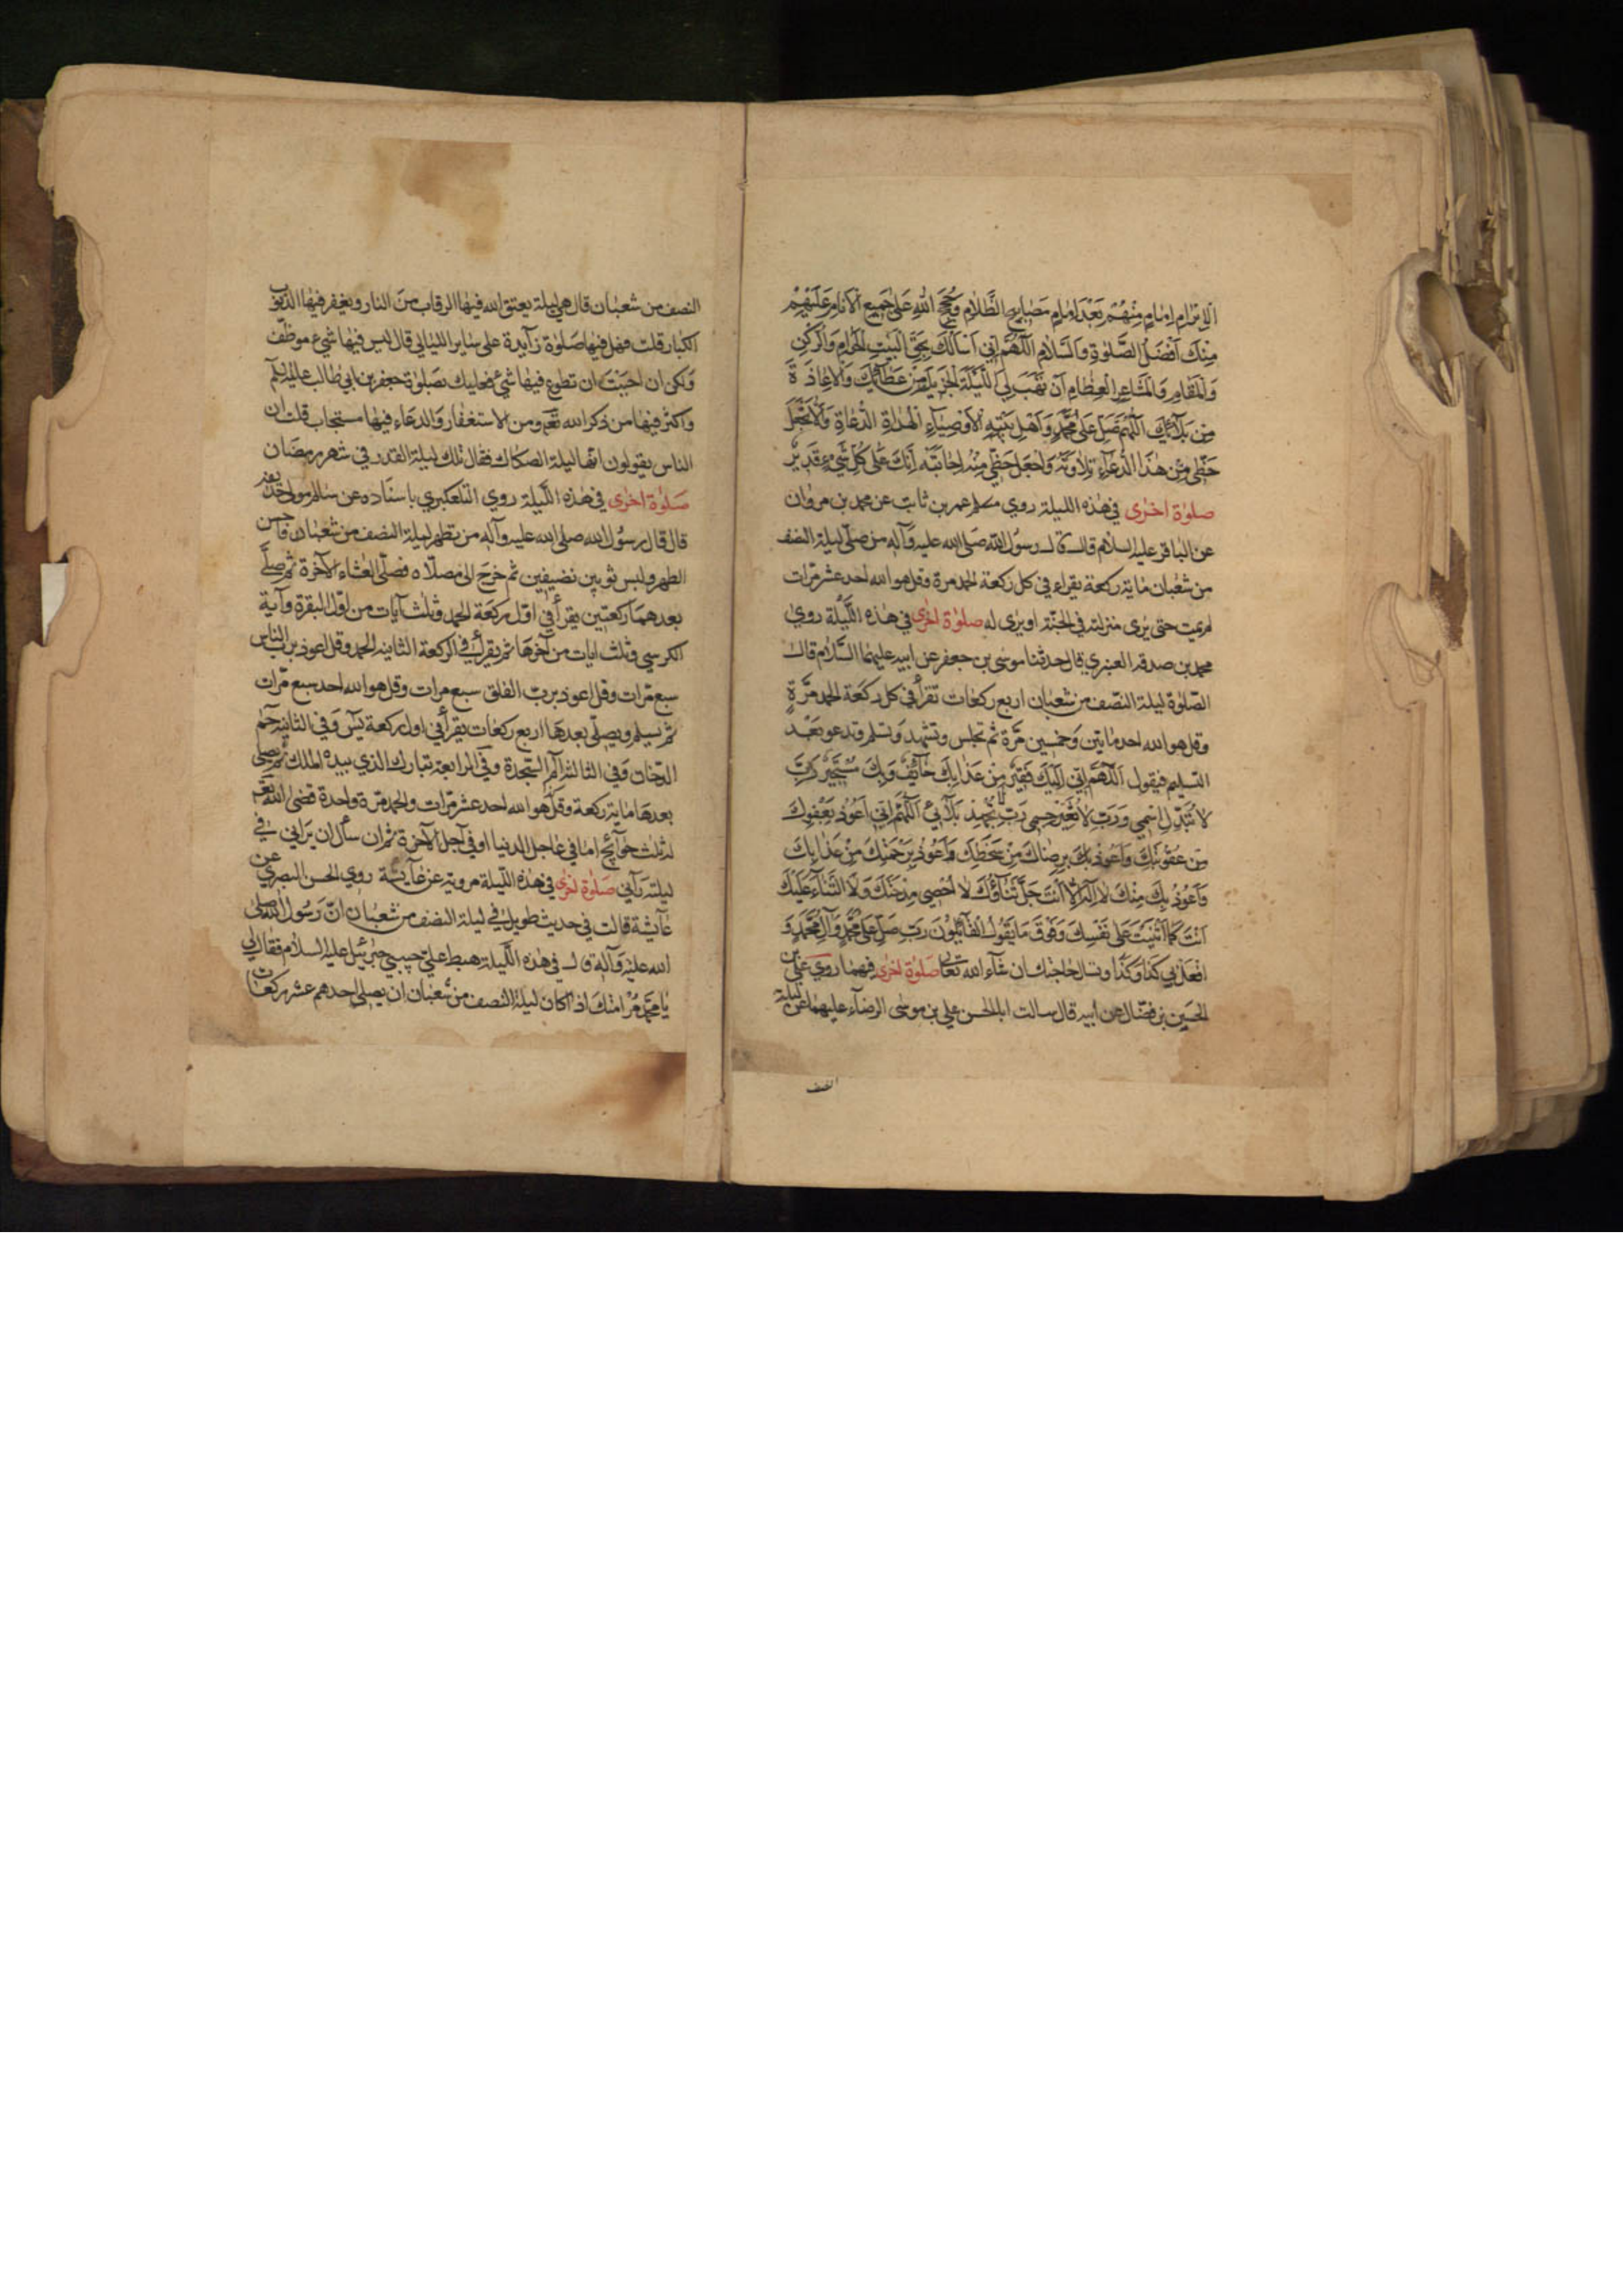 الابرام امام منهم بعد امام مصابيح الظلام وحجج الله على جميع الانام عليهم
منك افضل الصلوة والسلام اللهم اني اسالك بحق البيت الحرام والركن
والمقام والمشاعر العظام ان تهب لي الليلة الجزيل من عطائك والاعاذة
من بلائك اللهم صل على محمد واهل بيته الاوصياء الهداة الدعاة ولا تجعل
حظي من هذا الدعاء تلاوته واجعل حظي منه اجابته انك على كل شيء قدير
صلوة اخرى في هذه الليلة روي عمر بن ثابت عن محمد بن مروان
عن الباقر عليه السلام قال قال رسول الله صلى الله عليه وآله من صلى ليلة النصف
من شعبان ماية ركعة يقراء في كل ركعة الحمد مرة وقل هو الله احد عشر مرات
لم يمت حتى يرى منزلته في الجنة او يرى له صلوة اخرى في هذه الليلة روى
محمد بن صدقة العنبري قال حدثنا موسى بن جعفر عن ابيه عليهما السلام قال
الصلوة ليلة النصف من شعبان اربع ركعات تقرأ في كل ركعة الحمد مرة
وقل هو الله احد مايتين وخمسين مرة ثم تجلس وتشهد وتسلم وتدعو بعد
التسليم فيقول اللهم اني اليك فقير من عذابك خائف وبك مستجير رب
لا تبدل اسمي ورب لا تغير جسمي رب لا تجهد بلائي اللهم اني اعوذ بعفوك
من عقوبتك واعوذ بك برضاك من سخطك واعوذ برحمتك من عذابك
واعوذ بك منك لا اله الا انت جل ثناؤك لا احصي مدحتك ولا الثناء عليك
انت كما اثنيت على نفسك وفوق ما يقول القائلون رب صل على محمد وآل محمد و
افعل بي كذا وكذا وتسال حاجتك ان شاء الله تعالى صلوة اخرى فيهما روي علي بن
الحسين بن فضال عن ابيه قال سالت ابا الحسن علي بن موسى الرضاء عليهما عن ليلة
النصف
النصف من شعبان قال هي ليلة يعتق الله فيها الرقاب من النار ويغفر فيها الذنوب
الكبار قلت فهل فيها صلوة زايدة على ساير الليالي قال ليس فيها شيء موظف
ولكن ان احببت ان تطوع فيها شيء فعليك بصلوة جعفر بن ابي طالب عليه السلم
واكثر فيها من ذكر الله تعم ومن الاستغفار والدعاء فيها مستجاب قلت ان
الناس يقولون انها ليلة الصكاك فقال تلك ليلة القدر في شهر رمضان
صلوة اخرى في هذه الليلة روي التلعكبري باسناده عن سالم مولى حذيفه
قال قال رسول الله صلى الله عليه وآله من تطهر ليلة النصف من شعبان فاحسن
الطهر ولبس ثوبين نضيفين ثم خرج الى مصلاه فصلى العشاء الآخرة ثم صلى
بعدهما ركعتين يقرأ في اول ركعة الحمد وثلث آيات من اول البقرة وآية
الكرسي وثلث ايات من آخرها ثم يقرأ في الركعة الثانية الحمد وقل اعوذ برب الناس
سبع مرات وقل اعوذ برب الفلق سبع مرات وقل هو الله احد سبع مرات
ثم يسلم ويصلي بعدها اربع ركعات يقرأ في اول ركعة يس وفي الثانيه حم
الدخان وفي الثالثة الم السجدة وفي الرابعة تبارك الذي بيده الملك ثم يصلى
بعدها ماية ركعة وقل هو الله احد عشر مرات والحمد مرة واحدة قضى الله تعم
له ثلث حوائج اما في عاجل الدنيا او في آجل الآخرة ثم ان سأل ان يراني في
ليلته رآني صلوة اخرى في هذه الليلة مروية عن عايشة روي الحسن البصري عن
عايشة قالت في حديث طويل في ليلة النصف من شعبان ان رسول الله صلى
الله عليه وآله قال في هذه الليلة هبط علي حبيبي جبرئيل عليه السلام فقال لي
يا محمد مر امتك اذا كان ليلة النصف من شعبان ان يصلي احدهم عشر ركعات